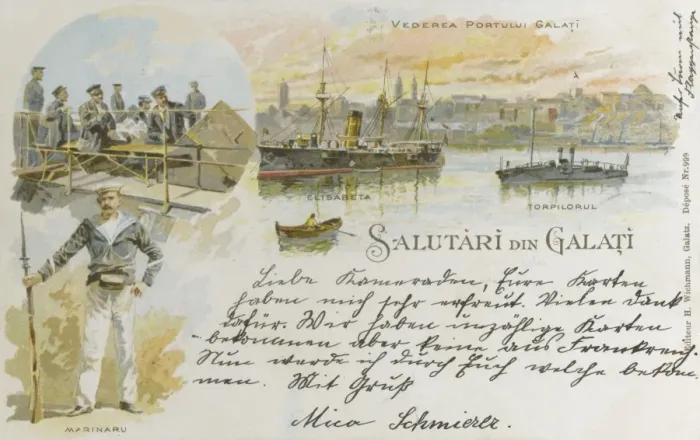 VEDEREA PORTULUI GALAȚI
ELISABETA
TORPILORUL
SALUTĂRI DIN GALAȚI
MARINARU
Liebe Kameraden, Eure Karten
haben mich sehr erfreut. Vielen Dank
dafür. Wir haben unzählige Karten
bekommen aber keine aus Frankreich.
Nun werde ich durch Euch welche bekom-
men. Mit Gruß
Mica
Editeur H. Galatz. Déposé Nr. 999